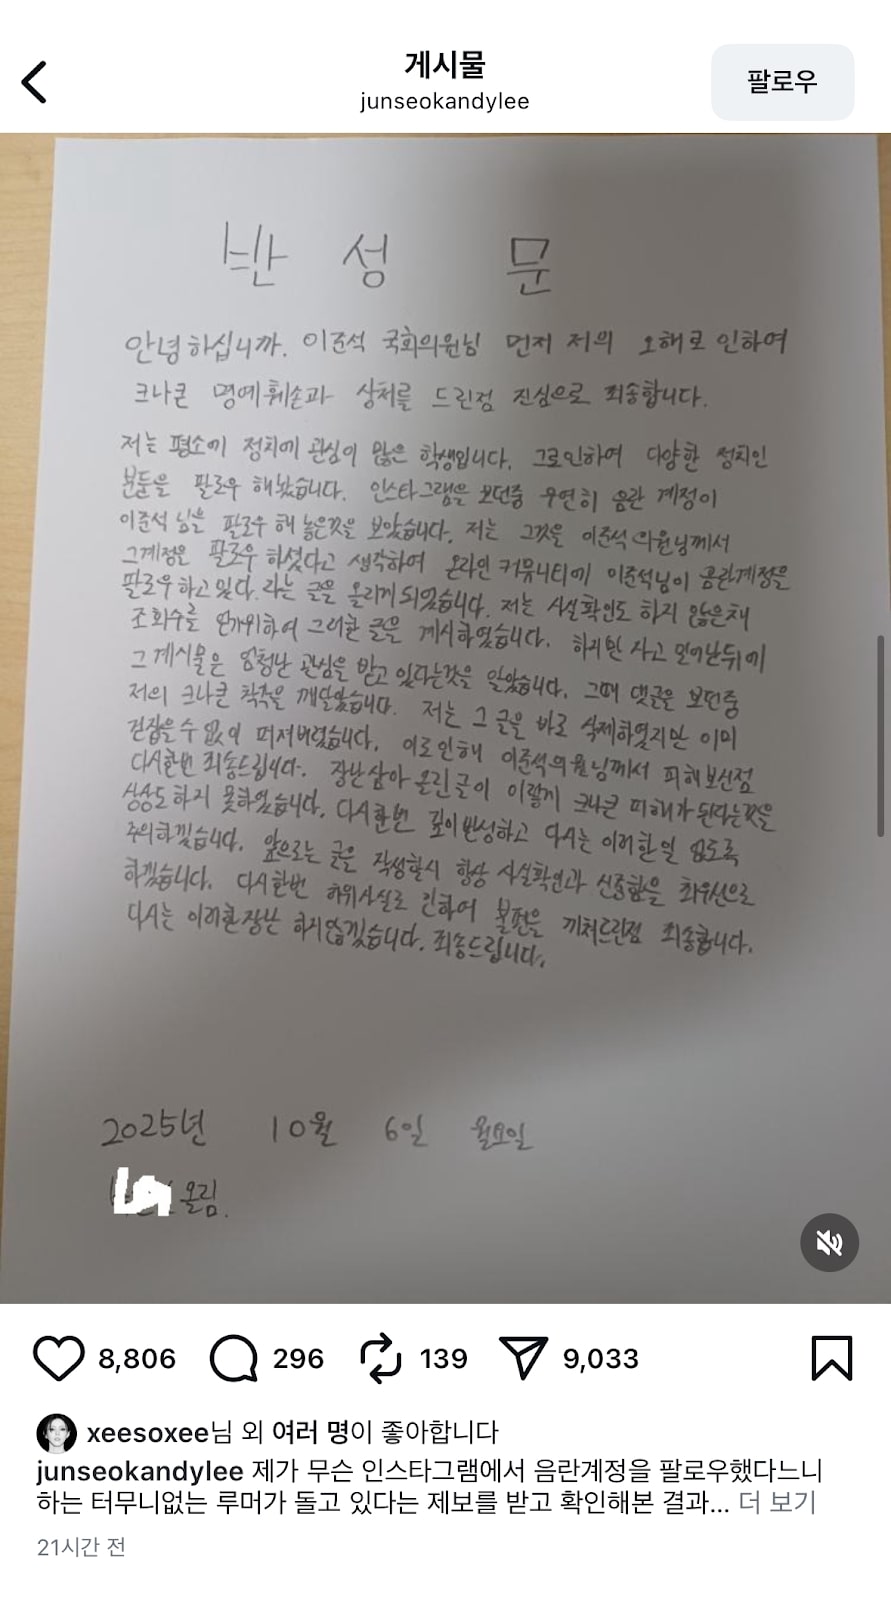 게시물
junseokandylee
팔로우
반 성 문
안녕하십니까. 이준석 국회의원님 먼저 저의 오해로 인하여
크나큰 명예훼손과 상처를 드린점 진심으로 죄송합니다.
저는 평소에 정치에 관심이 많은 학생입니다. 그로인하여 다양한 정치인
분들을 팔로우 해놨습니다. 인스타그램을 보던중 우연히 음란 계정이
이준석 님을 팔로우 해 놓은것을 보았습니다. 저는 그것을 이준석 의원님께서
그계정은 팔로우 하셨다고 생각하여 온라인 커뮤니티에 이준석님이 음란계정을
팔로우 하고 있다. 라는 글을 올리게 되었습니다. 저는 사실확인도 하지 않은채
조회수를 얻기위하여 그러한 글을 게시하였습니다. 하지만 자고 일어난뒤에
그 게시물은 엄청난 관심을 받고 있다는것을 알았습니다. 그때 댓글은 보던중
저의 크나큰 착각을 깨달았습니다. 저는 그 글을 바로 삭제하였지만 이미
걷잡을수 없이 퍼져버렸습니다. 이로인해 이준석의원님께서 피해보신점
다시한번 죄송드립니다. 장난삼아 올린글이 이렇게 크나큰 피해가 된다는것을
상상도 하지 못하였습니다. 다시한번 깊이반성하고 다시는 이러한일 없도록
주의하겠습니다. 앞으로는 글을 작성할시 항상 사실확인과 신중함을 최우선으로
하겠습니다. 다시한번 허위사실로 인하여 불편을 끼쳐드린점 죄송합니다.
다시는 이러한장난 하지않겠습니다. 죄송드립니다.
2025년 10월 6일 월요일
올림.
8,806 296 139 9,033
xeesoxee님 외 여러 명이 좋아합니다
junseokandylee 제가 무슨 인스타그램에서 음란계정을 팔로우했다느니
하는 터무니없는 루머가 돌고 있다는 제보를 받고 확인해본 결과... 더 보기
21시간 전